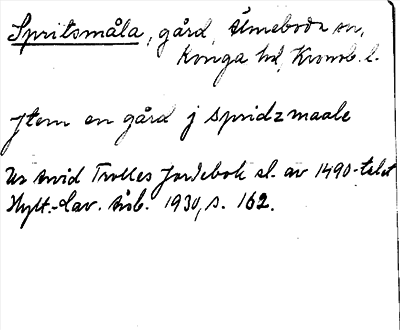 Spritsmåla, gård, Älmeboda sn,
Konga hd, Kronob. l.
Jtem en gård j spridzmaale
Ur Arvid Trolles Jordebok sl. av 1490-talet
Hylt.-Cav. årsb. 1930, s. 162.